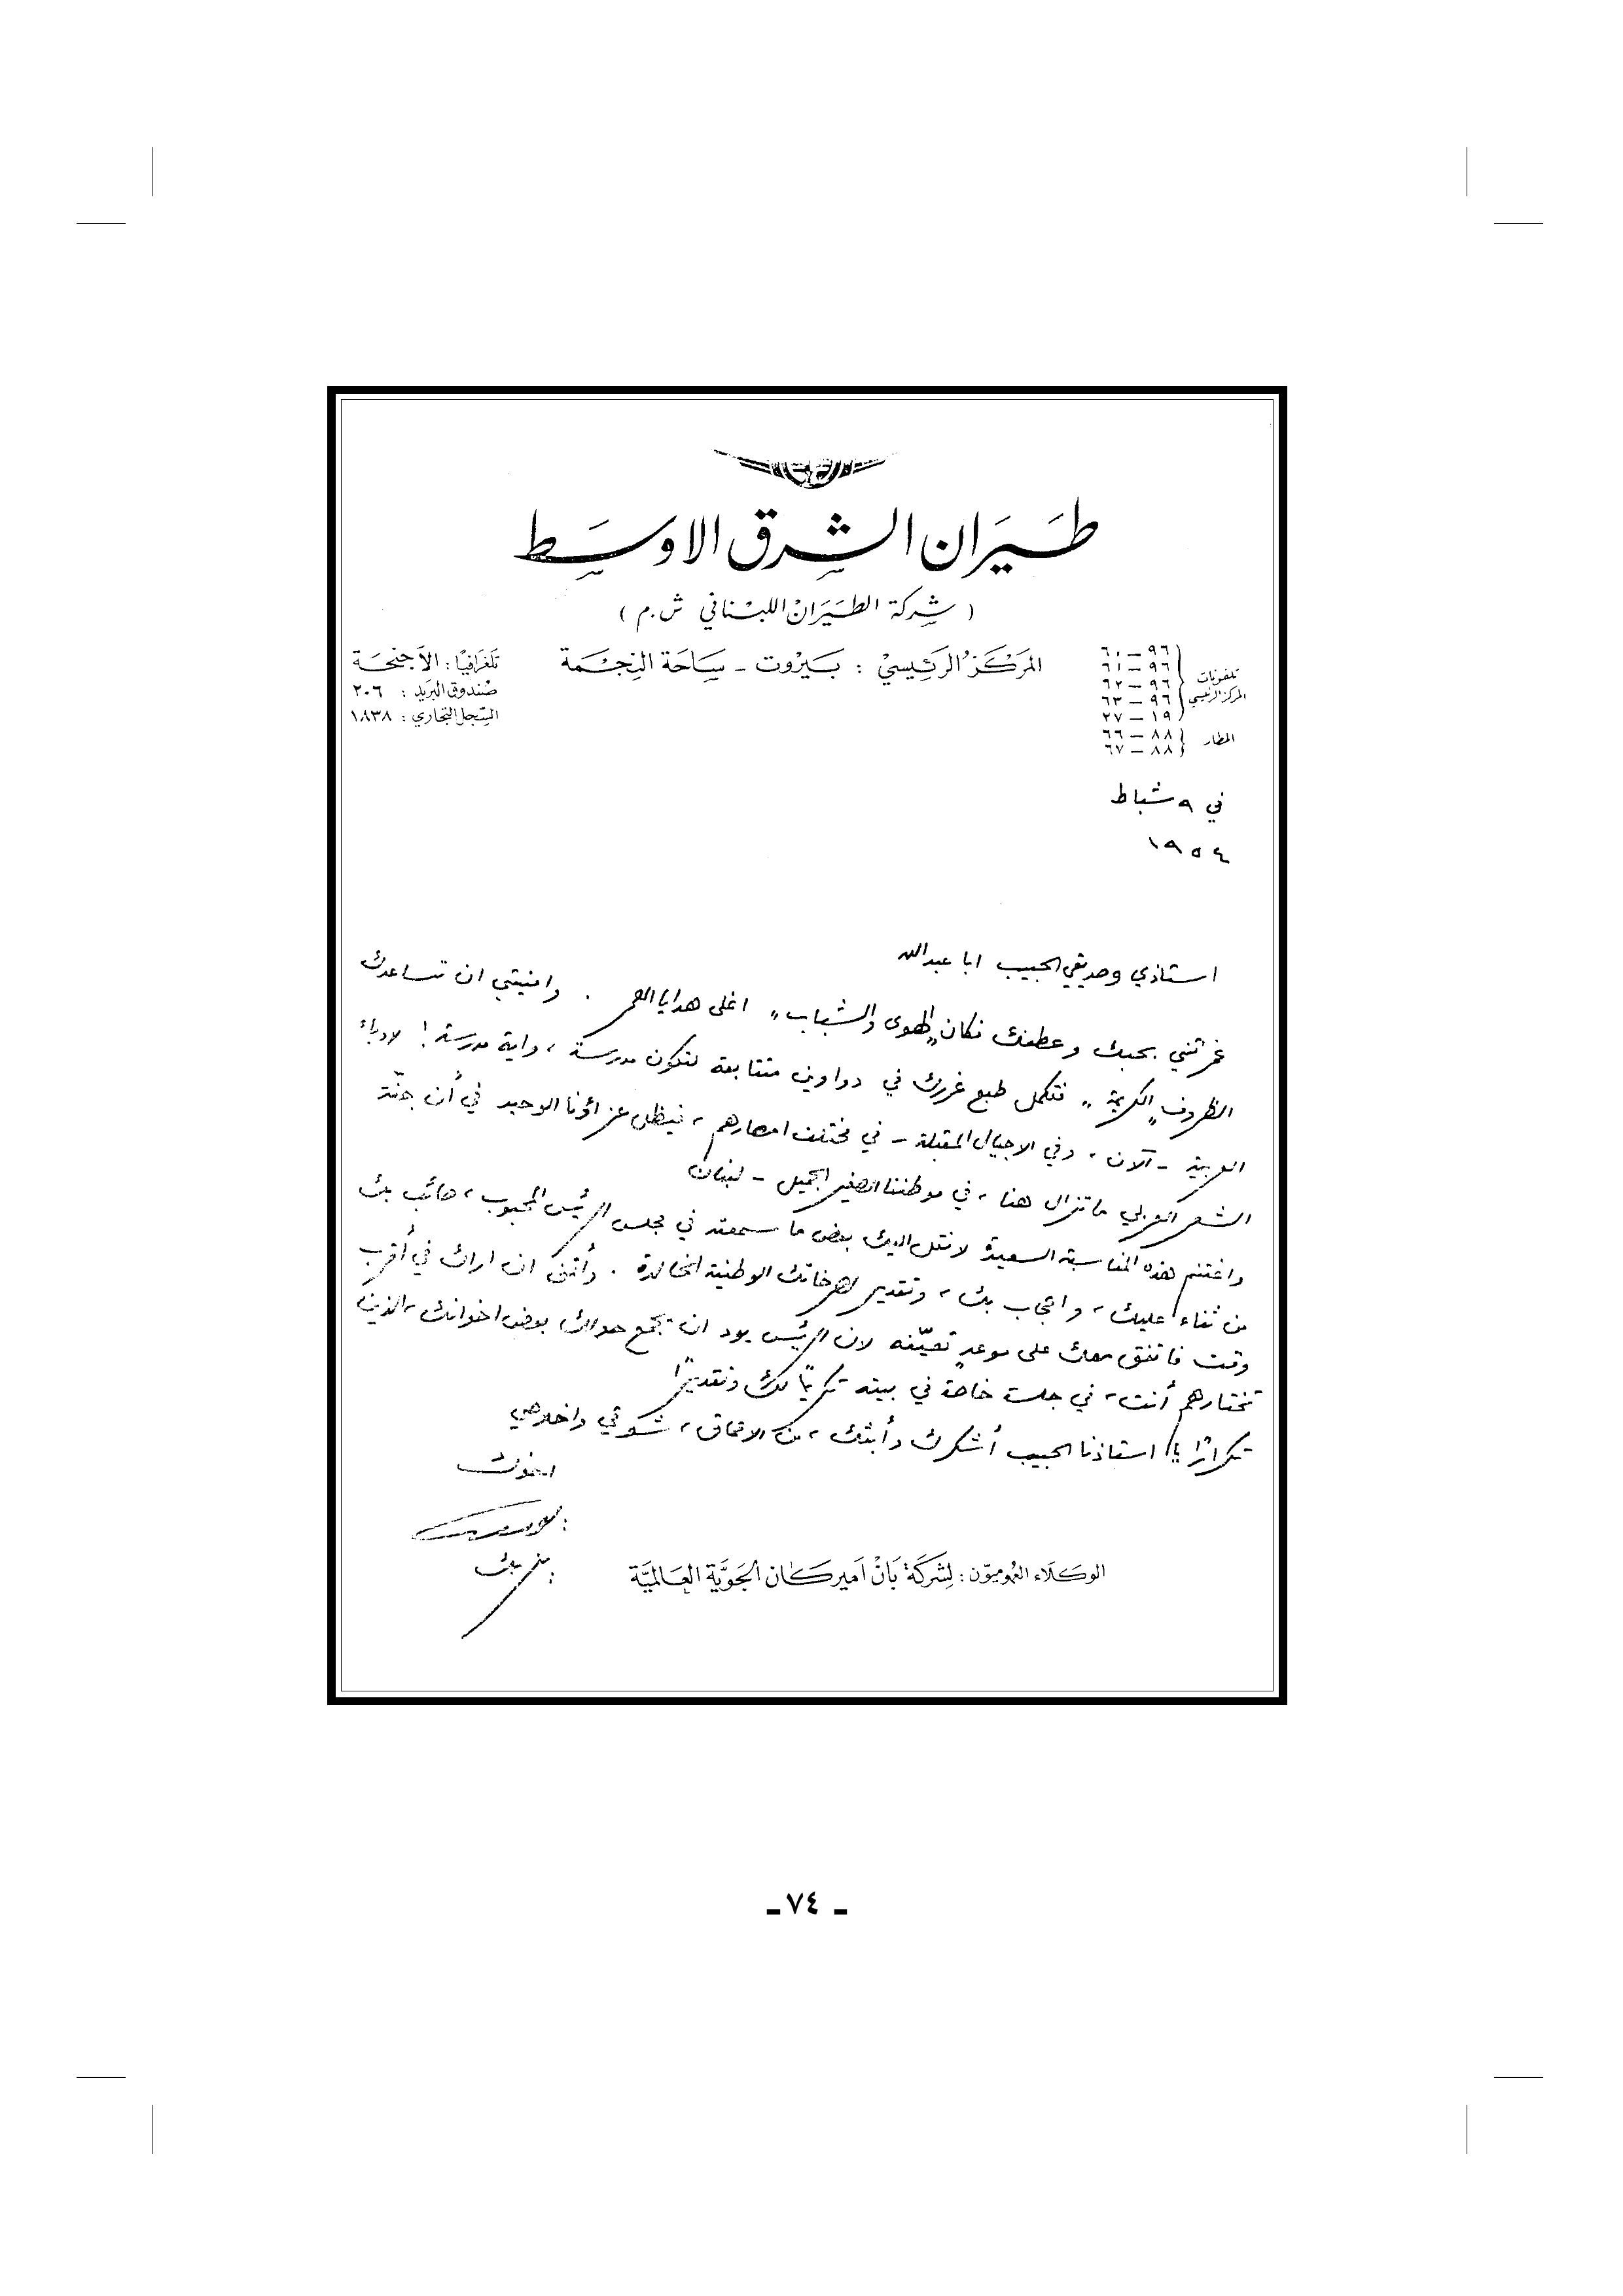 طيران الشرق الاوسط
( شركة الطيران اللبناني ش.م )
تلفونات المركز الرئيسي
٩٦ — ٦٠
٩٦ — ٦١
٩٦ — ٦٢
٩٦ — ٦٣
١٩ — ٢٧
المطار
٨٨ — ٦٦
٨٨ — ٦٧
المركز الرئيسي : بيروت - ساحة النجمة
تلغرافيا : الاجنحة
صندوق البريد : ٢٠٦
السجل التجاري : ١٨٣٨
في ٩ شباط
١٩٥٤
استاذي وصديقي الحبيب ابا عبدالله
غمرتني بحبك وعطفك فكان "الهوى والشباب" اغلى هدايا العمر . وامنيتي ان تساعدك
الظروف "الكريمة" فتكمل طبع غررك في دواوين متتابعة لتكون مدرسة ، واية مدرسة ! لادباء
العربية - آلان ، وفي الاجيال المقبلة - في مختلف امصارهم ، فيظل عزاؤنا الوحيد في أن جنّة
الشعر العربي ما تزال هنا ، في موطننا الصغير الجميل - لبنان
واغتنم هذه المناسبة السعيدة لانقل اليك بعض ما سمعته في مجلس الرئيس المحبوب ، صائب بك
من ثناء عليك ، واعجاب بك ، وتقدير لصرخاتك الوطنية الخالدة . وأتمنى ان اراك في أقرب
وقت فاتفق معك على موعدٍ تعيّنه لان الرئيس يود ان تجمع حوالك بعض اخوانك ، الذين
تختارهم أنت ، في جلسة خاصة في بيته تكريمًا لك وتقديرًا
تكرارًا يا استاذنا الحبيب أشكرك وأبثك ، من الاعماق ، شوقي واخلاصي
اخوك
الوكلاء العموميون : لشركة بان اميركان الجوية العالمية
- ٧٤ -